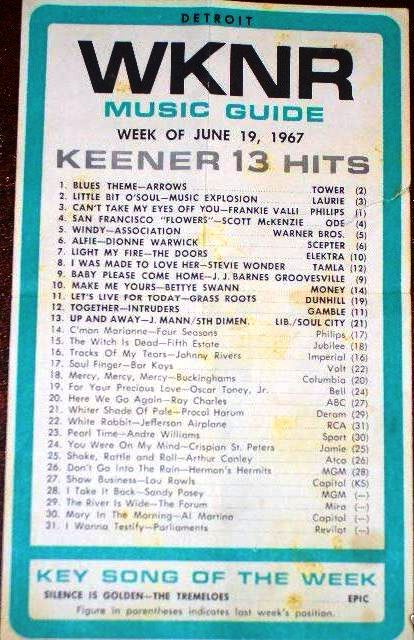 DETROIT
WKNR
MUSIC GUIDE
WEEK OF JUNE 19, 1967
KEENER 13 HITS
1. BLUES THEME—ARROWS TOWER (2)
2. LITTLE BIT O'SOUL—MUSIC EXPLOSION LAURIE (3)
3. CAN'T TAKE MY EYES OFF YOU—FRANKIE VALLI PHILIPS (1)
4. SAN FRANCISCO "FLOWERS"—SCOTT McKENZIE ODE (4)
5. WINDY—ASSOCIATION WARNER BROS. (5)
6. ALFIE—DIONNE WARWICK SCEPTER (6)
7. LIGHT MY FIRE—THE DOORS ELEKTRA (10)
8. I WAS MADE TO LOVE HER—STEVIE WONDER TAMLA (12)
9. BABY PLEASE COME HOME—J. J. BARNES GROOVESVILLE (9)
10. MAKE ME YOURS—BETTYE SWANN MONEY (14)
11. LET'S LIVE FOR TODAY—GRASS ROOTS DUNHILL (19)
12. TOGETHER—INTRUDERS GAMBLE (11)
13. UP AND AWAY—J. MANN/5TH DIMEN. LIB./SOUL CITY (21)
14. C'mon Marianne—Four Seasons Philips (17)
15. The Witch Is Dead—Fifth Estate Jubilee (18)
16. Tracks Of My Tears—Johnny Rivers Imperial (16)
17. Soul Finger—Bar Kays Volt (22)
18. Mercy, Mercy, Mercy—Buckinghams Columbia (20)
19. For Your Precious Love—Oscar Toney, Jr. Bell (24)
20. Here We Go Again—Ray Charles ABC (27)
21. Whiter Shade Of Pale—Procol Harum Deram (29)
22. White Rabbit—Jefferson Airplane RCA (31)
23. Pearl Time—Andre Williams Sport (30)
24. You Were On My Mind—Crispian St. Peters Jamie (25)
25. Shake, Rattle and Roll—Arthur Conley Atco (26)
26. Don't Go Into The Rain—Herman's Hermits MGM (28)
27. Show Business—Lou Rawls Capitol (KS)
28. I Take It Back—Sandy Posey MGM (—)
29. The River Is Wide—The Forum Mira (—)
30. Mary In The Morning—Al Martino Capitol (—)
31. I Wanna Testify—Parliaments Revilot (—)
KEY SONG OF THE WEEK
SILENCE IS GOLDEN—THE TREMELOES EPIC
Figure in parentheses indicates last week's position.